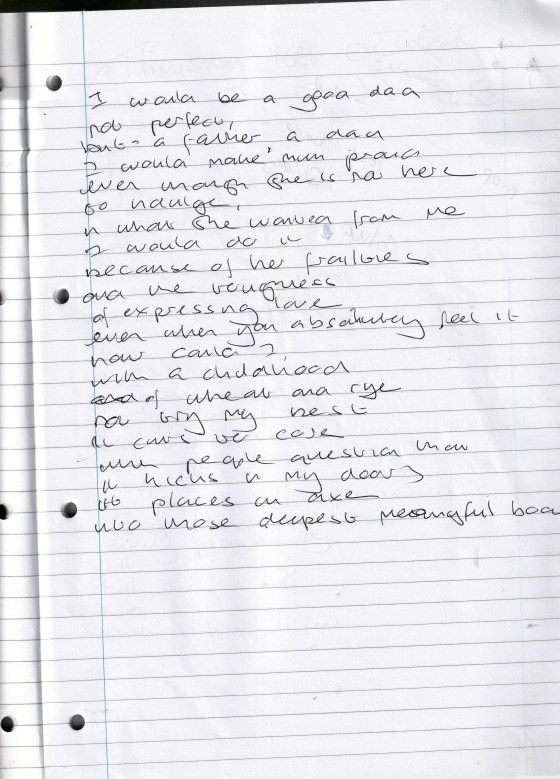 I would be a good dad
not perfect,
but - a father, a dad
I would make mum proud
even though she is not here
to indulge,
in what she wanted from me
I would do it
because of her frailties
and the toughness
of expressing love
even when you absolutely feel it
how could I,
with a childhood
of wheat and rye
not try my best
it can't be case
when people question that
it kicks in my doors
it places an axe
into those deepest meaningful